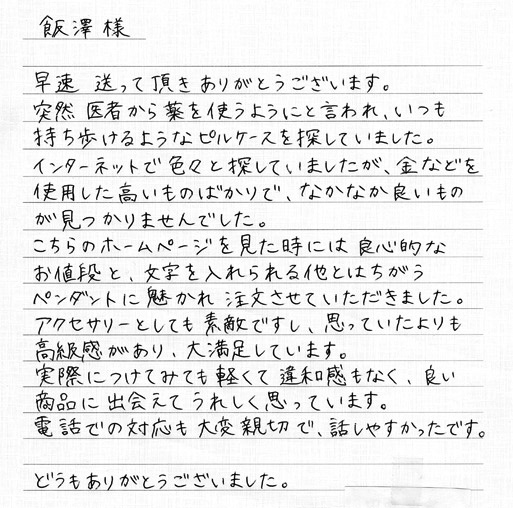 飯澤様
早速 送って頂きありがとうございます。
突然 医者から薬を使うようにと言われ、いつも
持ち歩けるようなピルケースを探していました。
インターネットで色々と探していましたが、金などを
使用した高いものばかりで、なかなか良いもの
が見つかりませんでした。
こちらのホームページを見た時には良心的な
お値段と、文字を入れられる他とはちがう
ペンダントに魅かれ注文させていただきました。
アクセサリーとしても素敵ですし、思っていたよりも
高級感があり、大満足しています。
実際につけてみても軽くて違和感もなく、良い
商品に出会えてうれしく思っています。
電話での対応も大変親切で、話しやすかったです。
どうもありがとうございました。